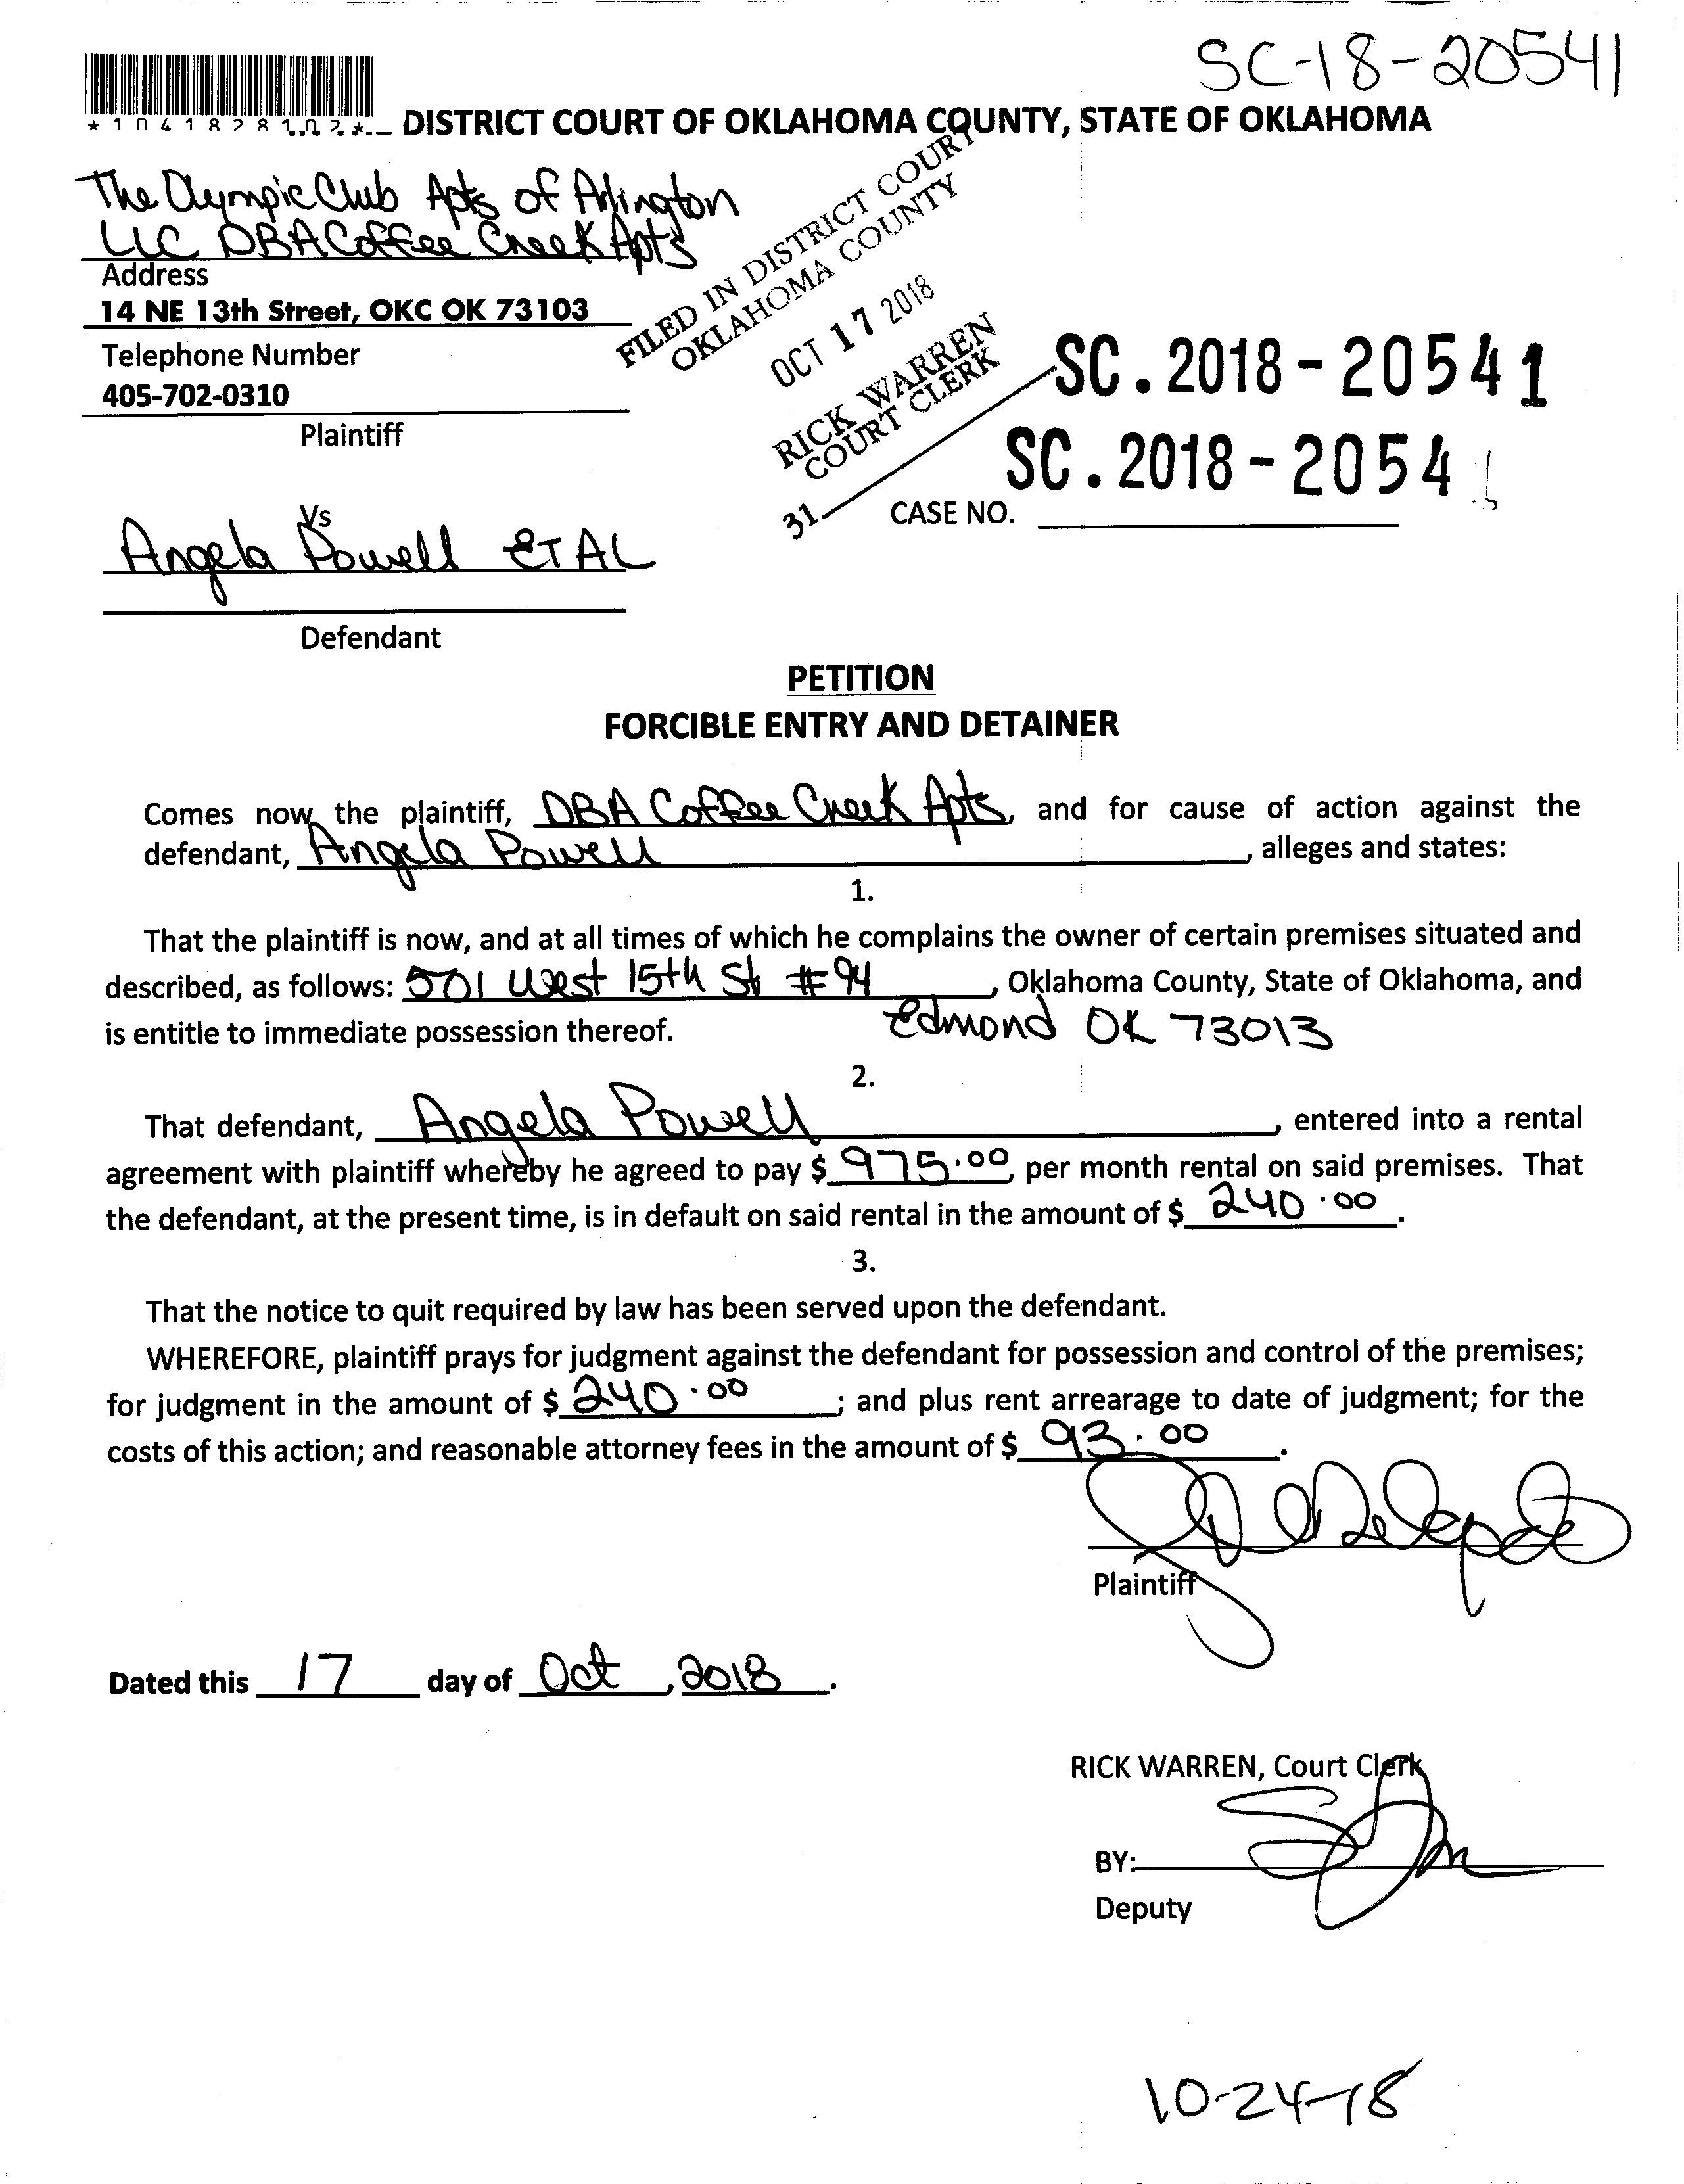 SC-18-20541
*1041828102*
DISTRICT COURT OF OKLAHOMA COUNTY, STATE OF OKLAHOMA
The Olympic Club Apts of Arlington
LLC DBA Coffee Creek Apts
Address
14 NE 13th Street, OKC OK 73103
Telephone Number
405-702-0310
Plaintiff
FILED IN DISTRICT COURT
OKLAHOMA COUNTY
OCT 17 2018
RICK WARREN
COURT CLERK
31
SC.2018-20541
SC.2018-2054
CASE NO.
Vs
Angela Powell ET AL
Defendant
PETITION
FORCIBLE ENTRY AND DETAINER
Comes now the plaintiff, DBA Coffee Creek Apts, and for cause of action against the
defendant, Angela Powell, alleges and states:
1.
That the plaintiff is now, and at all times of which he complains the owner of certain premises situated and
described, as follows: 501 West 15th St #94, Oklahoma County, State of Oklahoma, and
Edmond OK 73013
is entitle to immediate possession thereof.
2.
That defendant, Angela Powell, entered into a rental
agreement with plaintiff whereby he agreed to pay $ 975.00, per month rental on said premises. That
the defendant, at the present time, is in default on said rental in the amount of $ 240.00.
3.
That the notice to quit required by law has been served upon the defendant.
WHEREFORE, plaintiff prays for judgment against the defendant for possession and control of the premises;
for judgment in the amount of $ 240.00; and plus rent arrearage to date of judgment; for the
costs of this action; and reasonable attorney fees in the amount of $ 93.00.
Plaintiff
Dated this 17 day of Oct, 2018.
RICK WARREN, Court Clerk
BY:
Deputy
10-24-18